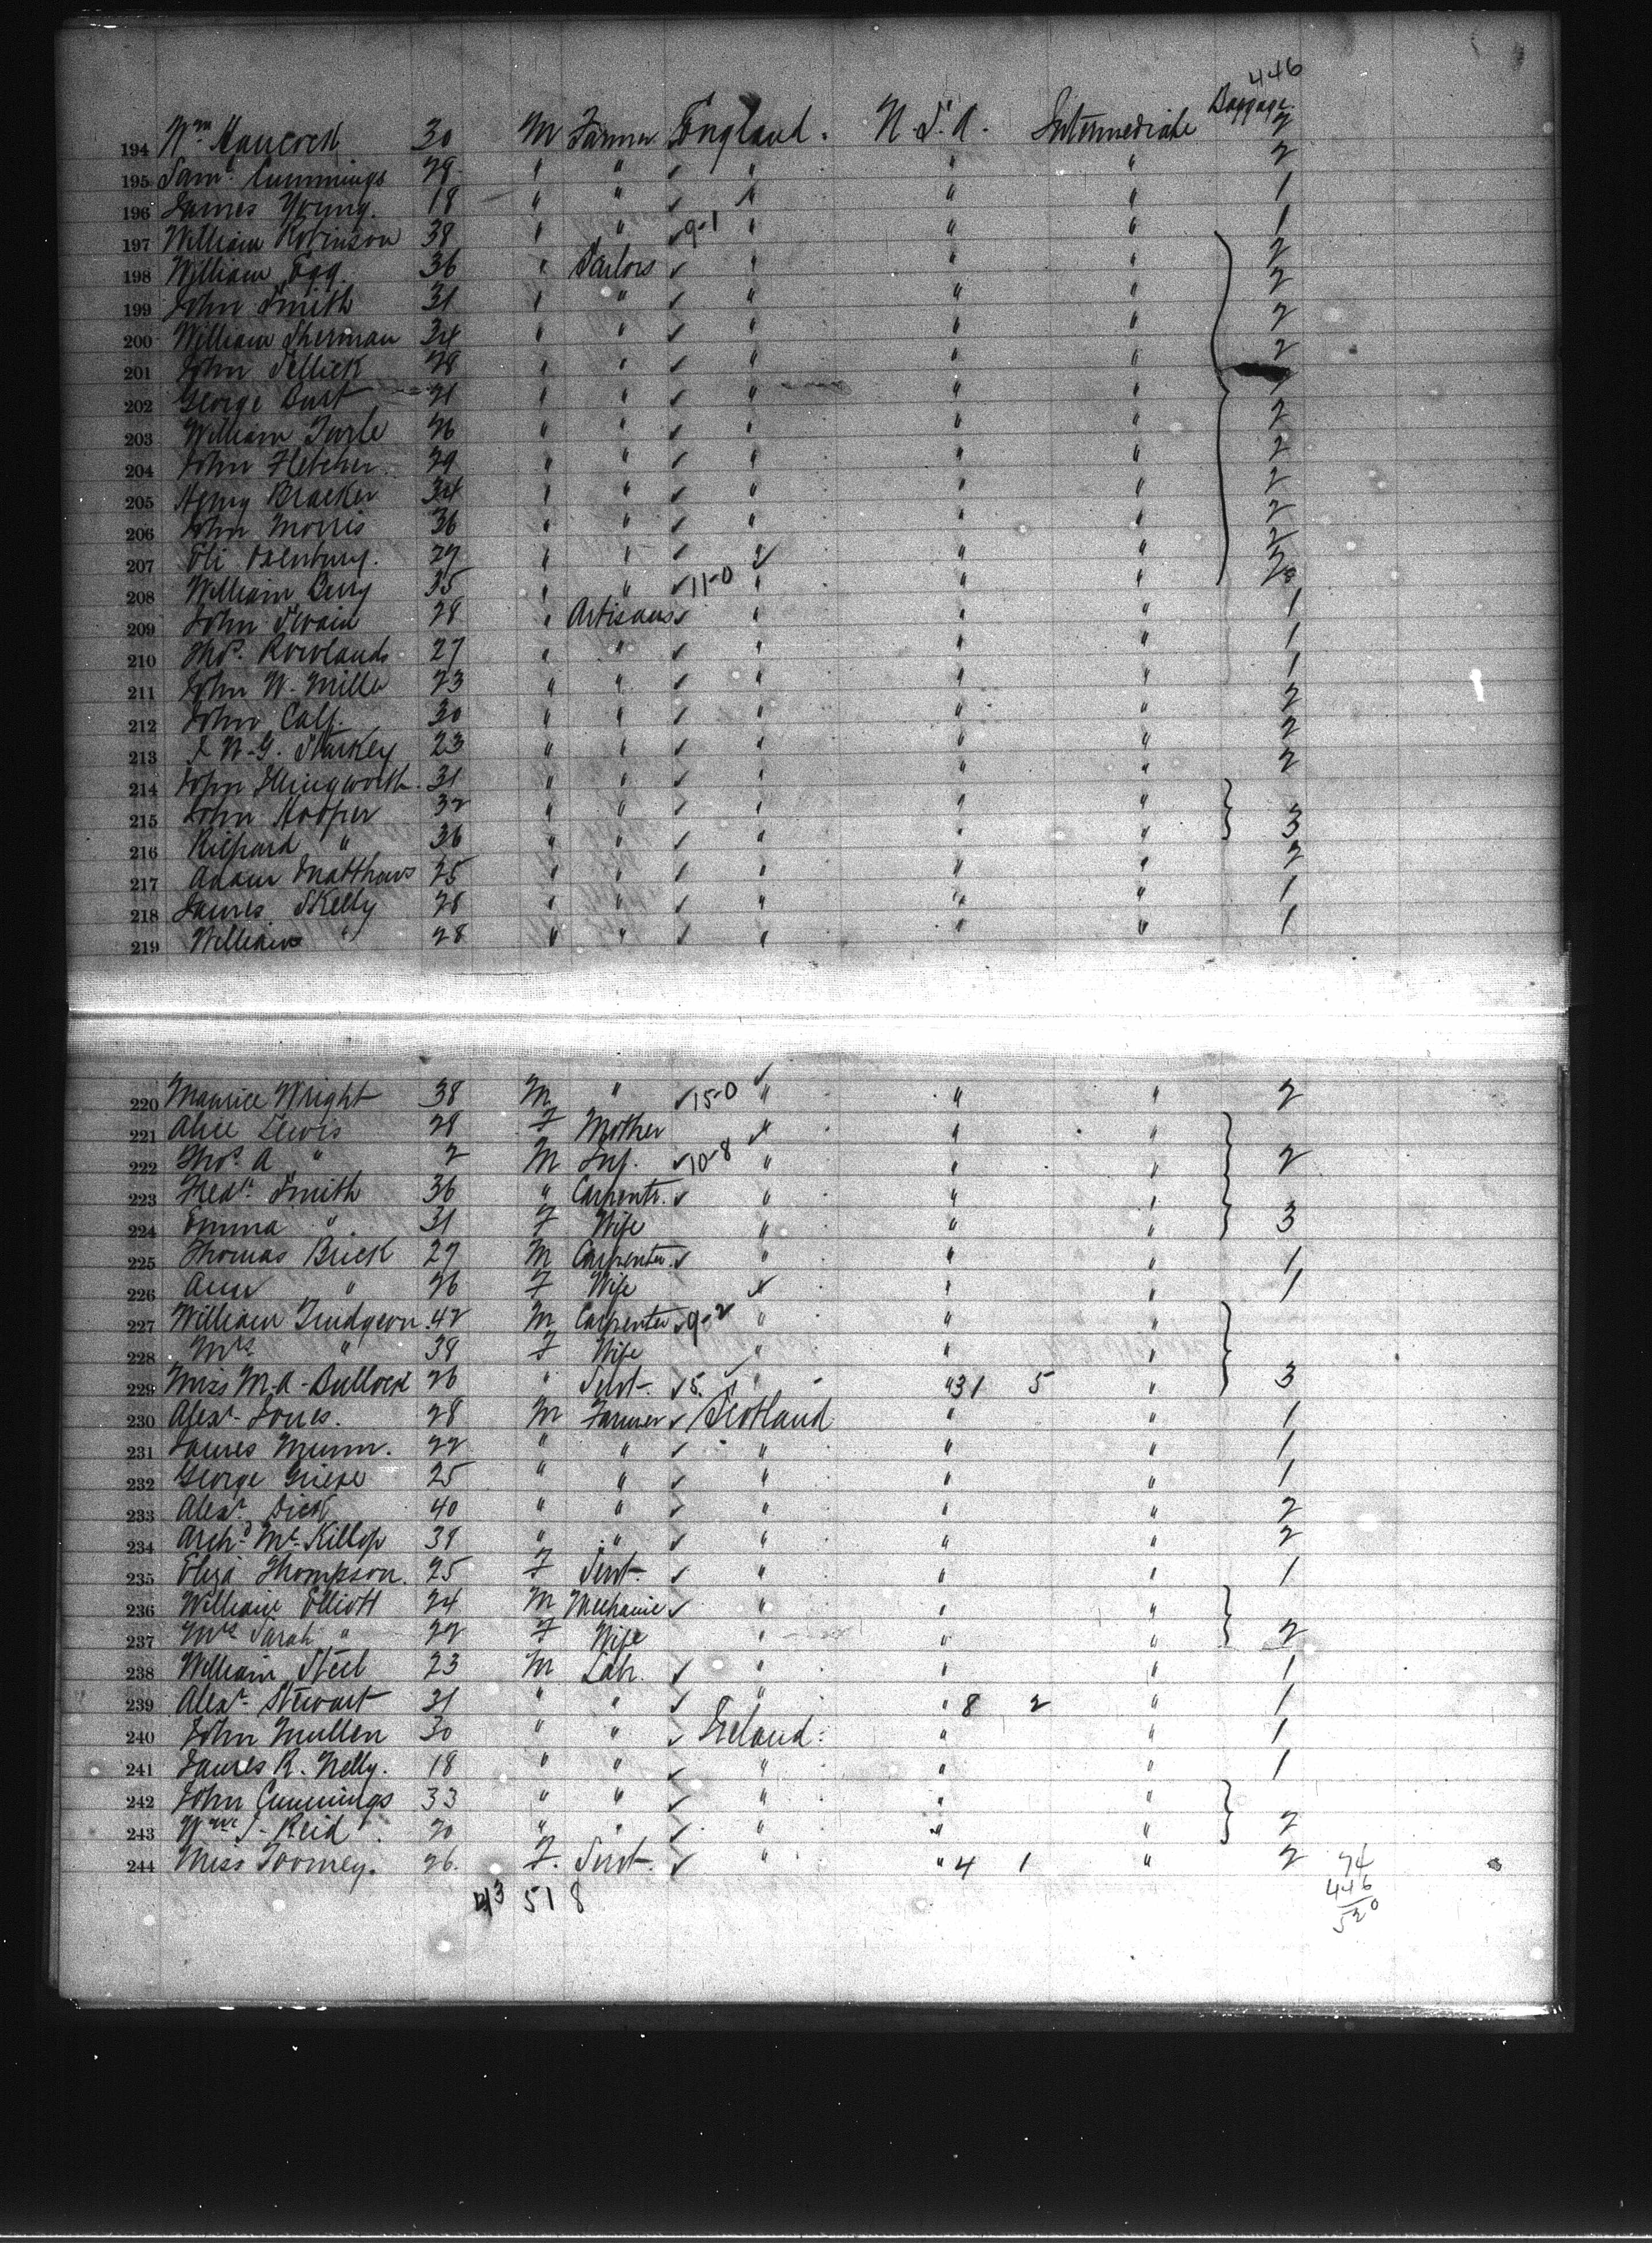 446
Baggage.
194 Wm Hancock 30 M Farmer England. U.S.A. Intermediate 2
195 Saml. Cummings 28 " " ✓ " " " 2
196 James Young. 18 " " ✓ " " " 1
197 William Robinson 38 " " ✓ 9-1 " " " 1
198 William Fogg. 36 " Tailors ✓ " " " 2
199 John Smith 31 " " ✓ " " " 2
200 William Sherman 34 " " ✓ " " " 2
201 John Sellick 28 " " ✓ " " " 2
202 George Burt 21 " " ✓ " " "
203 William Turle 26 " " ✓ " " " 2
204 John Fletcher. 29 " " ✓ " " " 2
205 Henry Bracker 34 " " ✓ " " " 2
206 John Morris 36 " " ✓ " " " 2
207 Eli 27 " " ✓ " " " 2
208 William Berry 35 " " ✓ 11-0 " " " 2
209 John Swain 28 " Artisans ✓ " " " 1
210 Thos. Rowlands 27 " " ✓ " " " 1
211 John W. Mills 23 " " ✓ " " " 1
212 John Calf. 30 " " ✓ " " " 2
213 W. G. Starkey 23 " " ✓ " " " 2
214 John Illingworth. 31 " " ✓ " " " 2
215 John Hooper 32 " " ✓ " " " 3
216 Richard " 36 " " ✓ " " " 3
217 Adam Matthews 25 " " ✓ " " " 2
218 James Skelly 28 " " ✓ " " " 1
219 William " 28 " " ✓ " " " 1
220 Maurice Wright 38 M " ✓ 15-0 " " " 2
221 Alice Lewis 28 F Mother " " "
222 Thos. A " 2 M Inf. ✓ 10-8 " " " 2
223 Fredk. Smith 36 " Carpentr. ✓ " " "
224 Emma " 31 F Wife " " " 3
225 Thomas Brick 27 M Carpenter ✓ " " " 1
226 Ann " 26 F Wife " " " 1
227 William Trudgeon. 42 M Carpenter ✓ 9-2 " " "
228 Mrs " 38 F Wife " " "
229 Miss M. A. Bullock 26 " Servt. ✓ 5. " " 31 5 " 3
230 Alexr. Jones. 28 M Farmer ✓ Scotland " " 1
231 James Munn. 22 " " ✓ " " " 1
232 George Grieve 25 " " ✓ " " " 1
233 Alexr. Dick 40 " " ✓ " " " 2
234 Archd. McKillop 38 " " ✓ " " " 2
235 Eliza Thompson. 25 F Servt. ✓ " " " 1
236 William Elliott 24 M Mechanic ✓ " " "
237 Mrs Sarah " 22 F Wife " " " 2
238 William Steel 23 M Labr. ✓ " " " 1
239 Alexr. Stewart 31 " " ✓ " " 8 2 " 1
240 John Mullen 30 " " ✓ Ireland. " " 1
241 James R. Nelly. 18 " " ✓ " " " 1
242 John Cummings 33 " " ✓ " " "
243 Wm J. Reid. 20 " " ✓ " " " 2
244 Miss Toomey. 26. F. Servt. ✓ " " 4 1 " 2
74
446
520
51 8